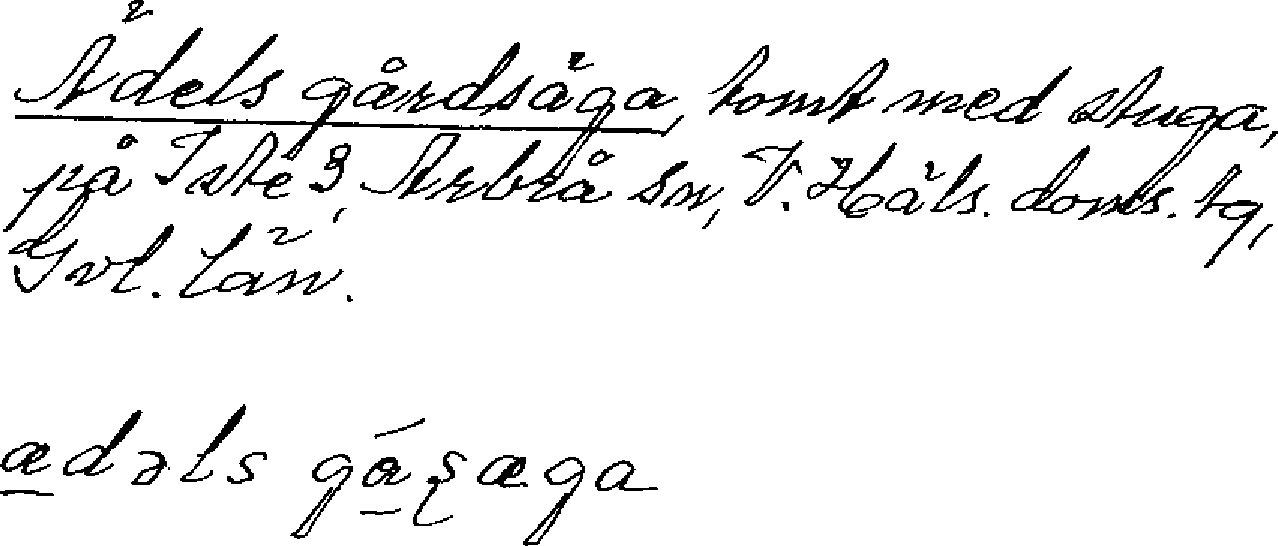 Ädels gårdsäga, tomt med stuga,
på Iste 3, Arbrå sn, V. Häls. doms. tg,
Gvl. län.
ædəls gá̱ʂæga